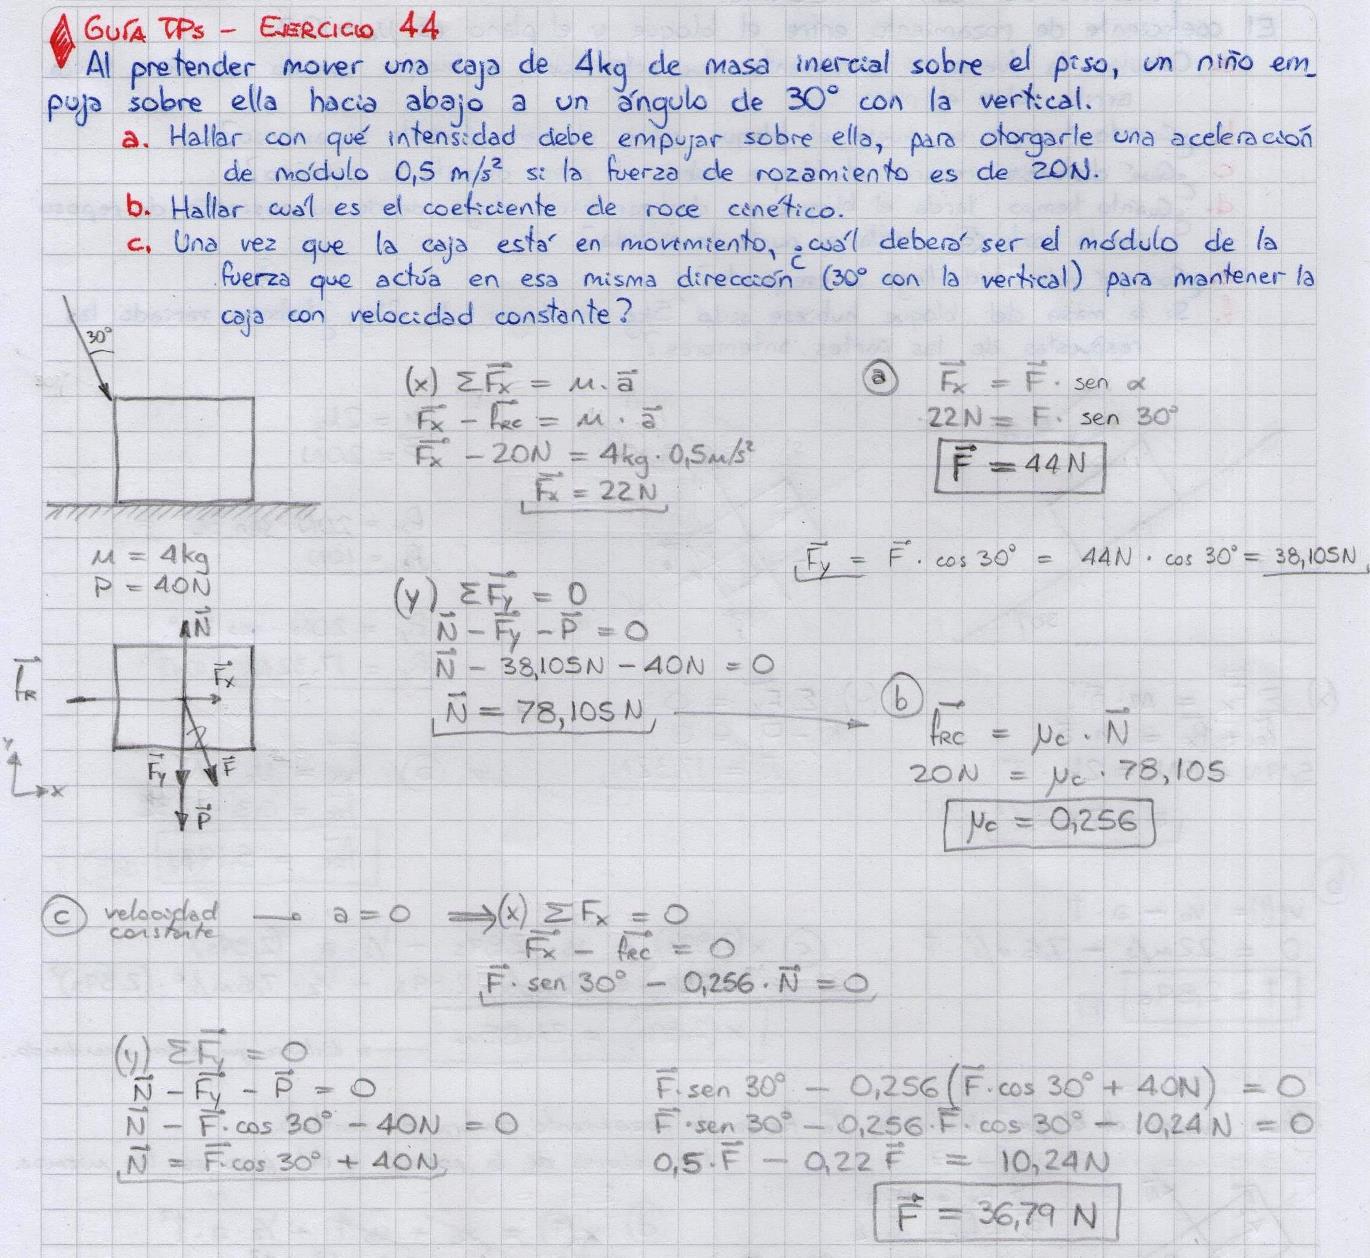 GUÍA TPs - EJERCICIO 44
Al pretender mover una caja de 4kg de masa inercial sobre el piso, un niño em_
puja sobre ella hacia abajo a un ángulo de 30° con la vertical.
a. Hallar con qué intensidad debe empujar sobre ella, para otorgarle una aceleración
de módulo 0,5 m/s² si la fuerza de rozamiento es de 20N.
b. Hallar cuál es el coeficiente de roce cinético.
c. Una vez que la caja está en movimiento, ¿cuál deberá ser el módulo de la
fuerza que actúa en esa misma dirección (30° con la vertical) para mantener la
caja con velocidad constante?
30°
(x) ΣF⃗x = m. a⃗
F⃗x - f⃗rc = m . a⃗
F⃗x - 20N = 4kg . 0,5m/s²
F⃗x = 22N
a
F⃗x = F⃗ . sen α
22N = F . sen 30°
F⃗ = 44N
F⃗y = F⃗ . cos 30° = 44N . cos 30° = 38,105N
m = 4kg
P = 40N
N⃗
F⃗x
f⃗R
F⃗y
F⃗
P⃗
y
x
(y) ΣF⃗y = 0
N⃗ - F⃗y - P⃗ = 0
N⃗ - 38,105N - 40N = 0
N⃗ = 78,105N →
b
f⃗rc = μc . N⃗
20N = μc . 78,105
μc = 0,256
c velocidad constante → a = 0 ⟹ (x) ΣFx = 0
F⃗x - f⃗rc = 0
F⃗ . sen 30° - 0,256 . N⃗ = 0
(y) ΣF⃗y = 0
N⃗ - F⃗y - P⃗ = 0
N⃗ - F⃗.cos 30° - 40N = 0
N⃗ = F⃗.cos 30° + 40N
F⃗.sen 30° - 0,256 (F⃗.cos 30° + 40N) = 0
F⃗.sen 30° - 0,256.F⃗.cos 30° - 10,24N = 0
0,5.F⃗ - 0,22 F⃗ = 10,24N
F⃗ = 36,79 N